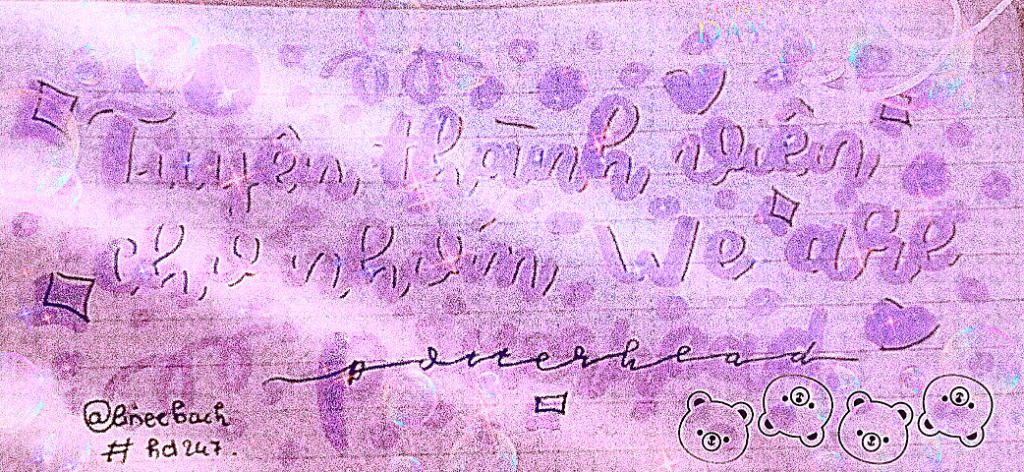 Tuyện thành viên
cho nhóm We are
potterhead
@bneebach
# hd247.